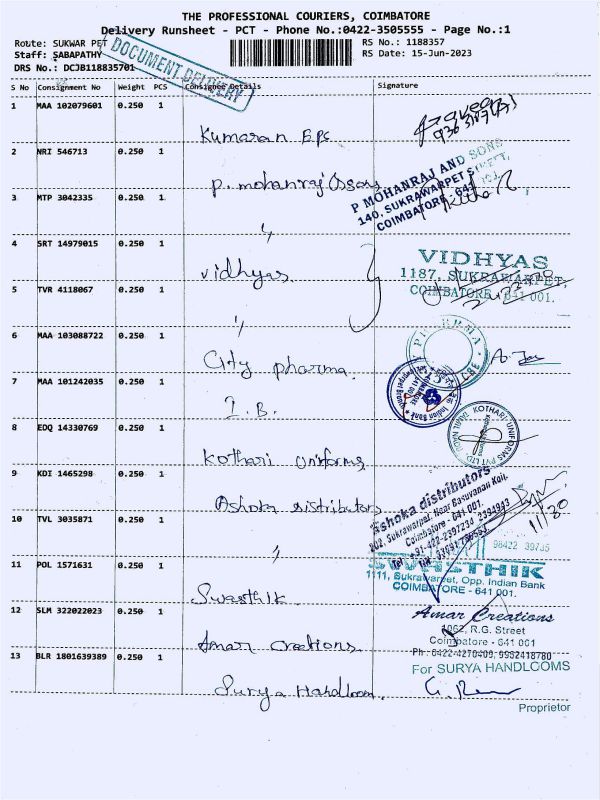 THE PROFESSIONAL COURIERS, COIMBATORE
Delivery Runsheet - PCT - Phone No.:0422-3505555 - Page No.:1
Route: SUKWAR PET
RS No.: 1188357
Staff: SABAPATHY
RS Date: 15-Jun-2023
DRS No.: DCJB118835701
DOCUMENT DELIVERY
S No Consignment No Weight PCS Consignee Details Signature
1 MAA 102079601 0.250 1
Kumaran Eps
2 NRI 546713 0.250 1
P. mohanraj &sons
P MOHANRAJ AND SONS
140, SUKRAWARPET STREET,
COIMBATORE - 641 101.
3 MTP 3042335 0.250 1
"
4 SRT 14979015 0.250 1
vidhyas
VIDHYAS
1187, SUKRAWARPET,
COIMBATORE - 641 001.
5 TVR 4118067 0.250 1
"
6 MAA 103088722 0.250 1
City pharma.
7 MAA 101242035 0.250 1
I.B.
Indian Bank
8 EDQ 14330769 0.250 1
Kothari uniforms
KOTHARI UNIFORMS PVT LTD
9 KDI 1465298 0.250 1
Ashoka distributors
Ashoka distributors
202, Sukrawarpet, Near Basuvanan Koil,
Coimbatore - 641 001.
Tel : +91-422-2397234 2394943
11/20
10 TVL 3035871 0.250 1
"
98422 39735
11 POL 1571631 0.250 1
Swasthik
SWASTHIK
1111, Sukrawarpet, Opp. Indian Bank
COIMBATORE - 641 001.
12 SLM 322022023 0.250 1
Amar creations
Amar Creations
1062, R.G. Street
Coimbatore - 641 001
Ph : 0422-4270409, 9952418780
13 BLR 1801639389 0.250 1
Surya Handloom.
For SURYA HANDLOOMS
Proprietor